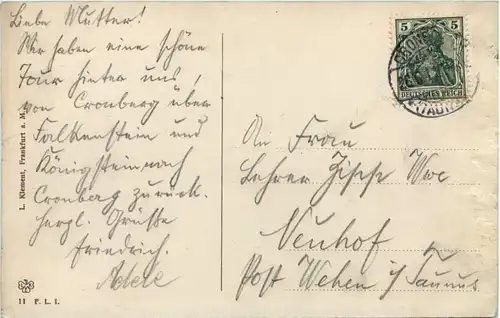 Liebe Mutter!
Wir haben eine schöne
Tour hinter uns,
von Cronberg über
Falkenstein und
Königstein nach
Cronberg zurück.
Herzl. Grüße
Friedrich.
Adele
L. Klement, Frankfurt a. M.
11 P. L. L.
5 5
DEUTSCHES REICH
CRONBERG
(TAUNUS)
An Frau
Lehrer
Neuhof
Post Wehen i/Taunus